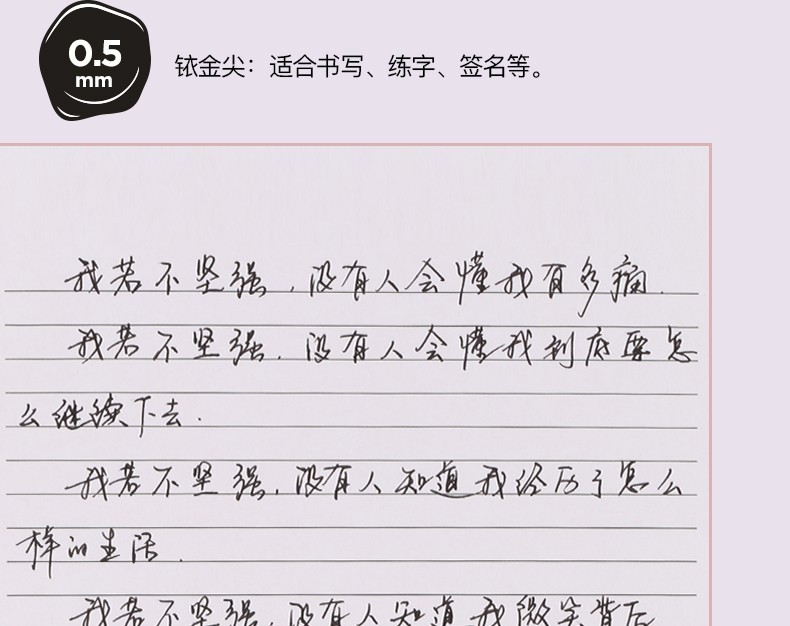 0.5
mm
铱金尖：适合书写、练字、签名等。
我若不坚强，没有人会懂我有多痛.
我若不坚强，没有人会懂我到底要怎
么继续下去.
我若不坚强，没有人知道我经历了怎么
样的生活.
我若不坚强，没有人知道我微笑背后